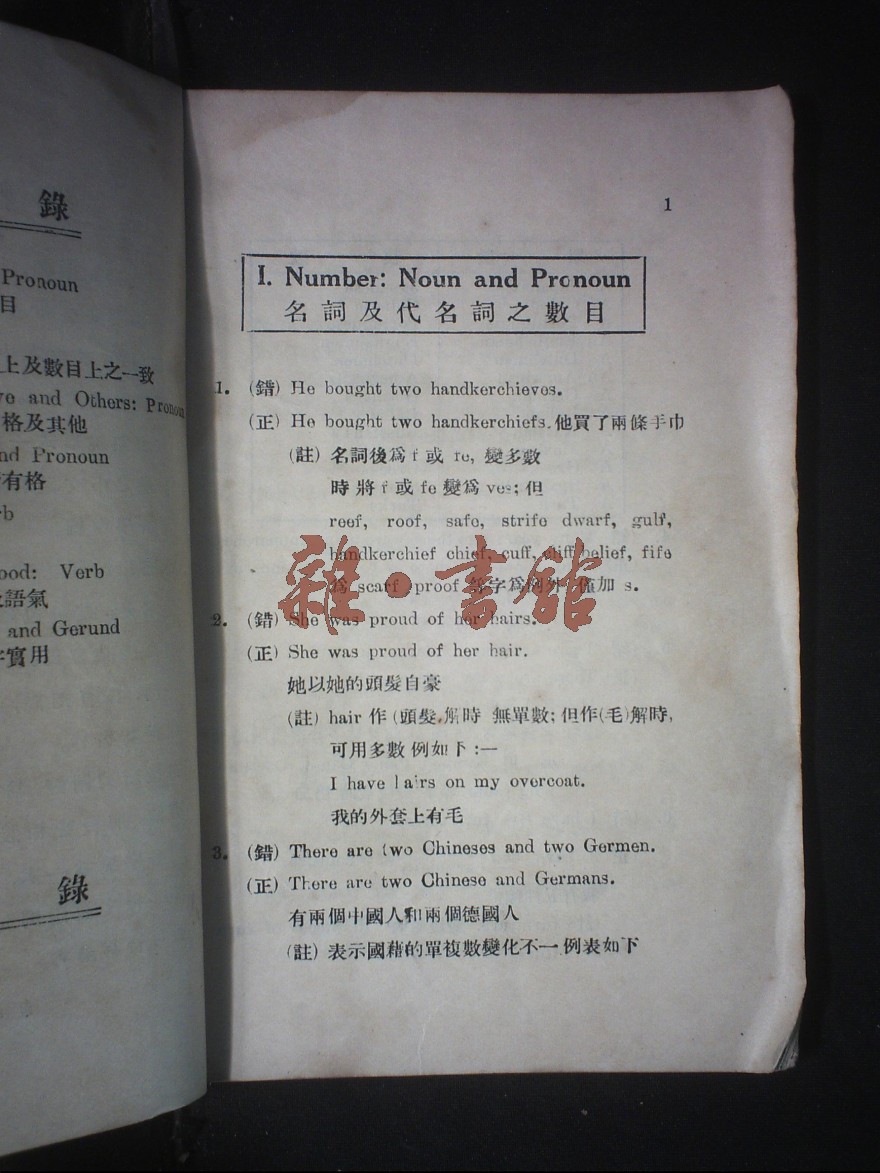 錄
Pronoun
目
上及數目上之一致
ve and Others: Pronoun
格及其他
nd Pronoun
有格
rb
ood: Verb
語氣
and Gerund
實用
錄
1
I. Number: Noun and Pronoun
名詞及代名詞之數目
1. (錯) He bought two handkerchieves.
(正) He bought two handkerchiefs. 他買了兩條手巾
(註) 名詞後爲 f 或 fe, 變多數
時將 f 或 fe 變爲 ves; 但
reef, roof, safe, strife dwarf, gulf,
handkerchief chief, cuff, cliff belief, fife
爲 scarf proof 等字爲例外 僅加 s.
2. (錯) She was proud of her hairs.
(正) She was proud of her hair.
她以她的頭髮自豪
(註) hair 作 (頭髮) 解時 無單數; 但作(毛)解時,
可用多數 例如下:—
I have hairs on my overcoat.
我的外套上有毛
3. (錯) There are two Chineses and two Germen.
(正) There are two Chinese and Germans.
有兩個中國人和兩個德國人
(註) 表示國籍的單複數變化不一 例表如下
雜·書館